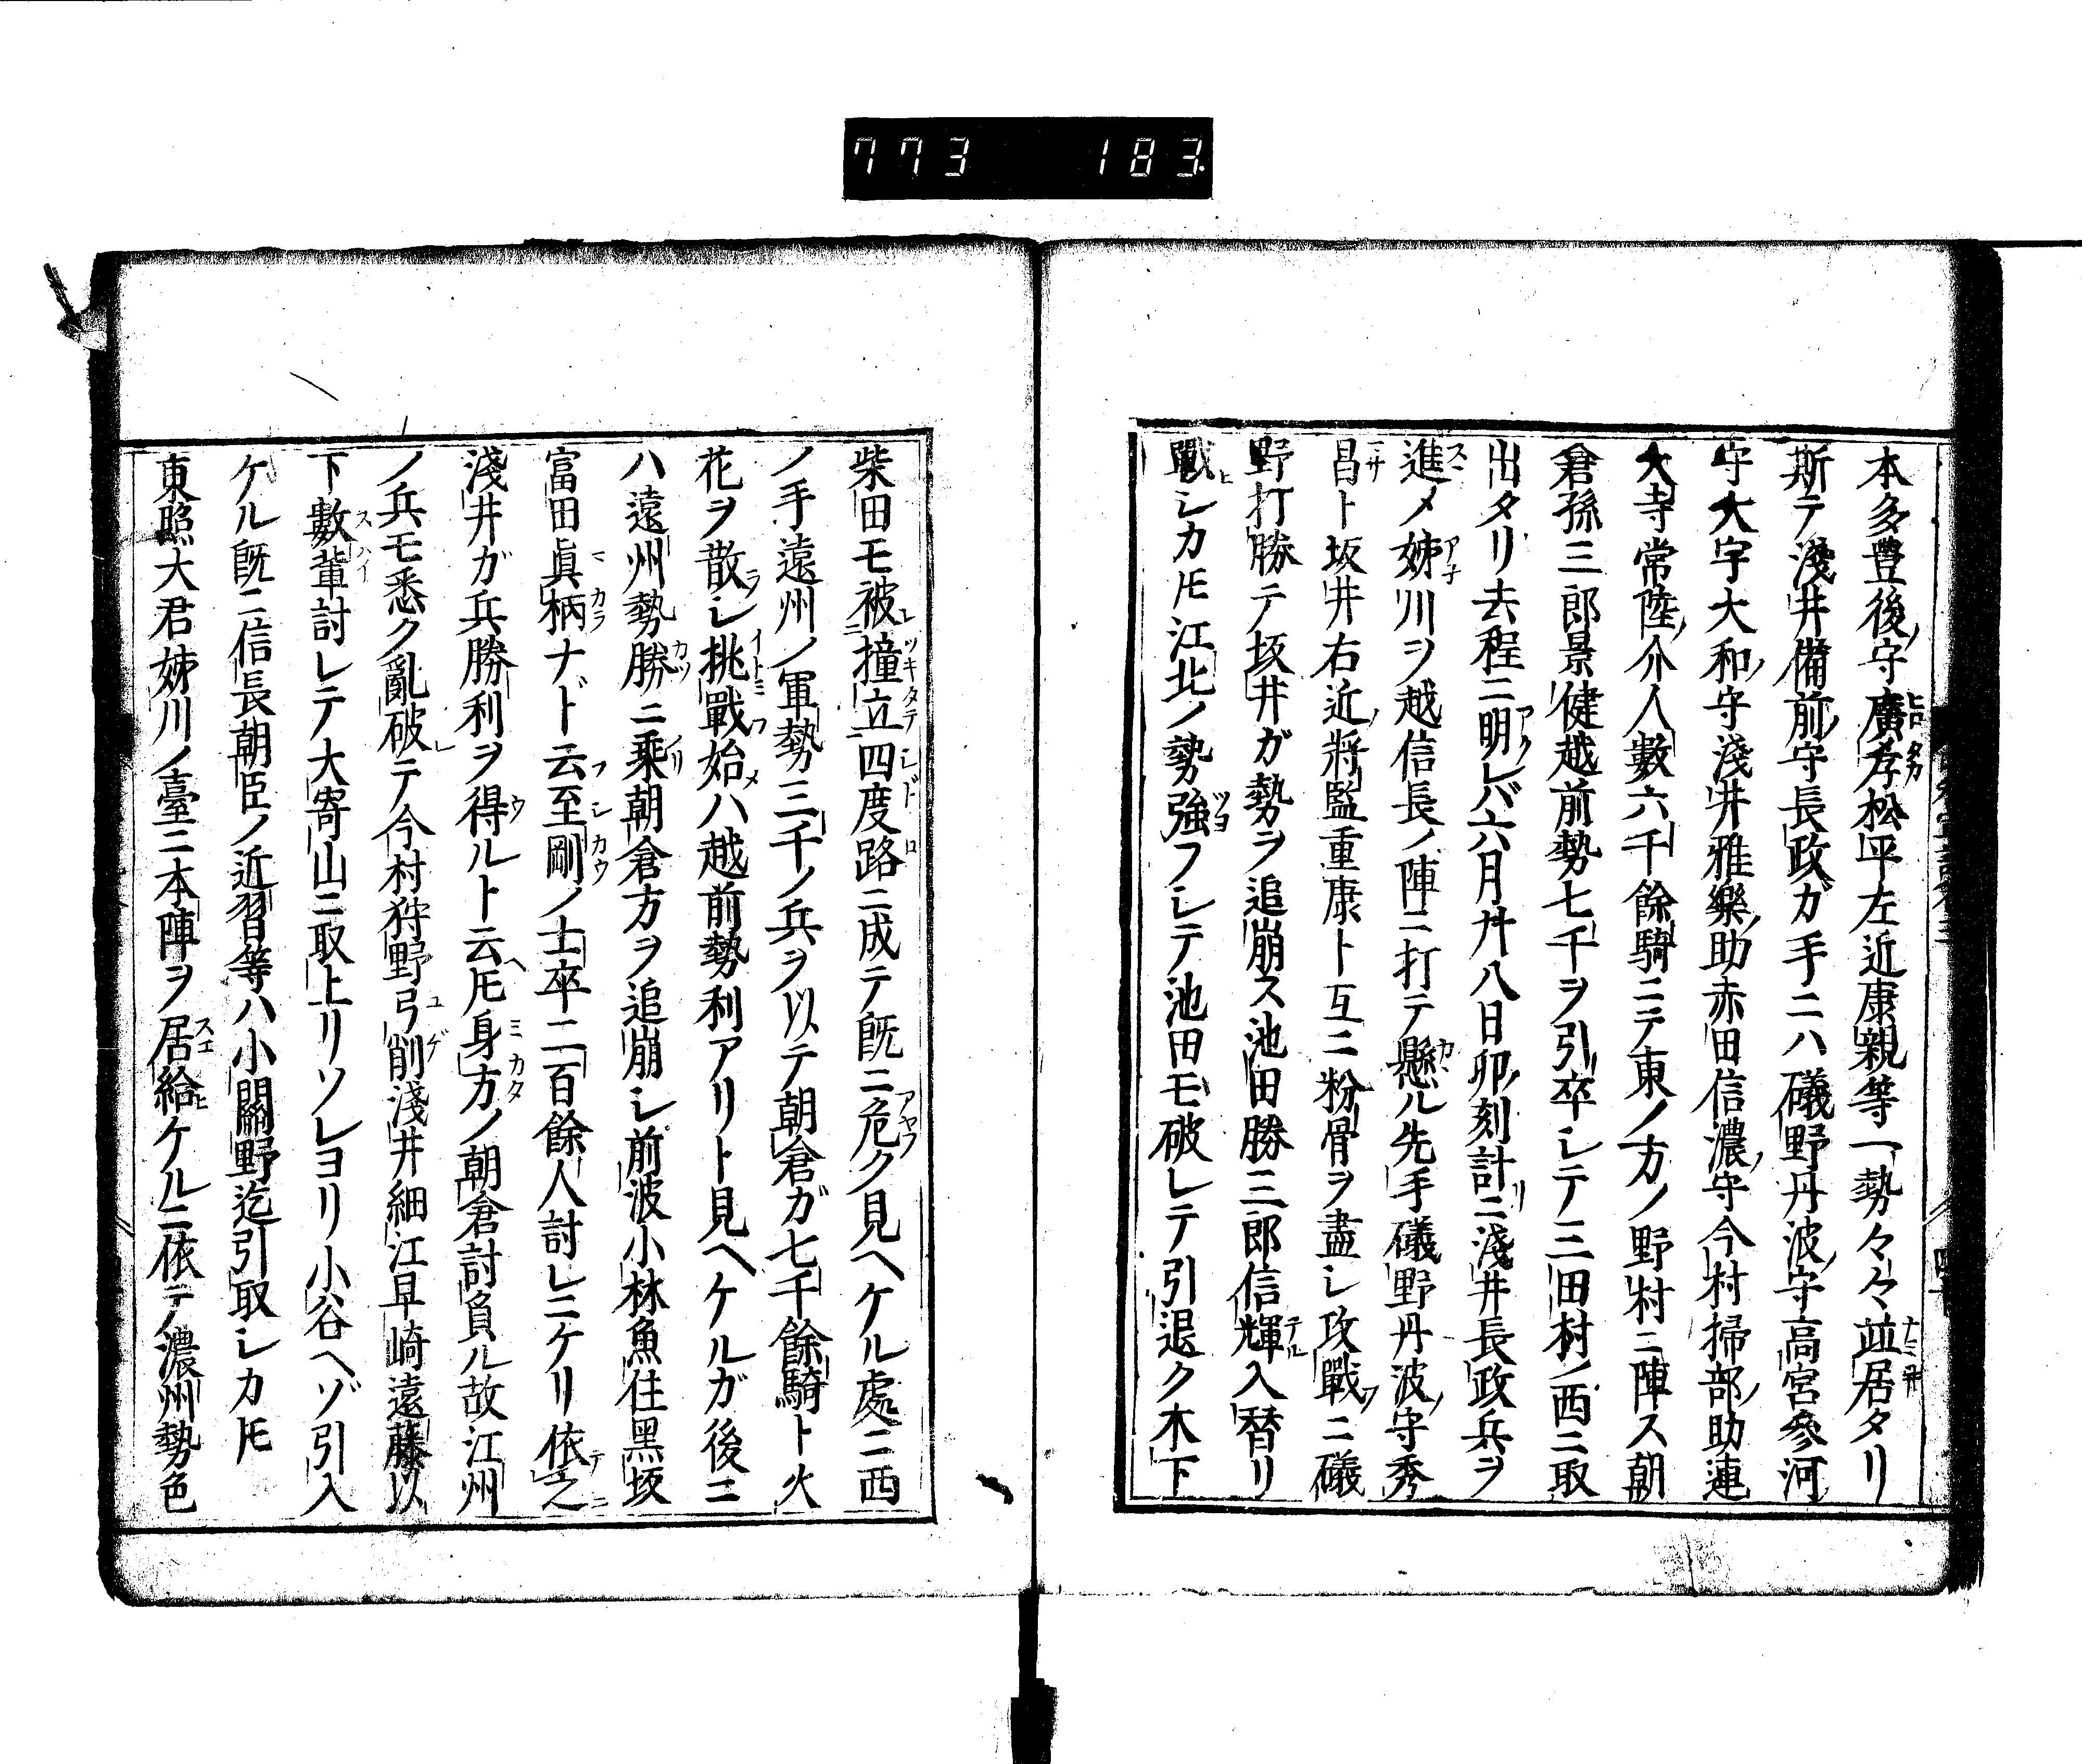 773 183
本多豊後守廣孝松平左近康親等一勢々々並居タリ
斯テ淺井備前守長政ガ手ニハ礒野丹波守高宮參河
守大宇大和守淺井雅樂助赤田信濃守今村掃部助連
大寺常陸介人數六千餘騎ニテ東ノ方ノ野村ニ陣ス朝
倉孫三郎景健越前勢七千ヲ引卒シテ三田村ノ西ニ取
出タリ去程ニ明レバ六月廿八日卯刻計ニ淺井長政兵ヲ
進メ姊川ヲ越信長ノ陣ニ打テ懸ル先手礒野丹波守秀
昌ト坂井右近將監重康ト互ニ粉骨ヲ盡シ攻戰ニ礒
野打勝テ坂井ガ勢ヲ追崩ス池田勝三郎信輝入替リ
戰シカ𪜈江北ノ勢強フシテ池田モ破レテ引退ク木下
柴田モ被撞立四度路ニ成テ既ニ危ク見ヘケル處ニ西
ノ手遠州ノ軍勢三千ノ兵ヲ以テ朝倉ガ七千餘騎ト火
花ヲ散シ挑戰始ハ越前勢利アリト見ヘケルガ後ニ
ハ遠州勢勝ニ乘朝倉方ヲ追崩シ前波小林魚住黑坂
富田眞柄ナド云至剛ノ士卒二百餘人討レニケリ依之
淺井ガ兵勝利ヲ得ルト云𪜈身方ノ朝倉討負ル故江州
ノ兵モ悉ク亂破テ今村狩野弓削淺井細江早崎遠藤以
下數輩討レテ大寄山ニ取上リソレヨリ小谷ヘゾ引入
ケル既ニ信長朝臣ノ近習等ハ小關野迄引取シカ𪜈
東照大君姊川ノ臺ニ本陣ヲ居給ケルニ依テノ濃州勢色